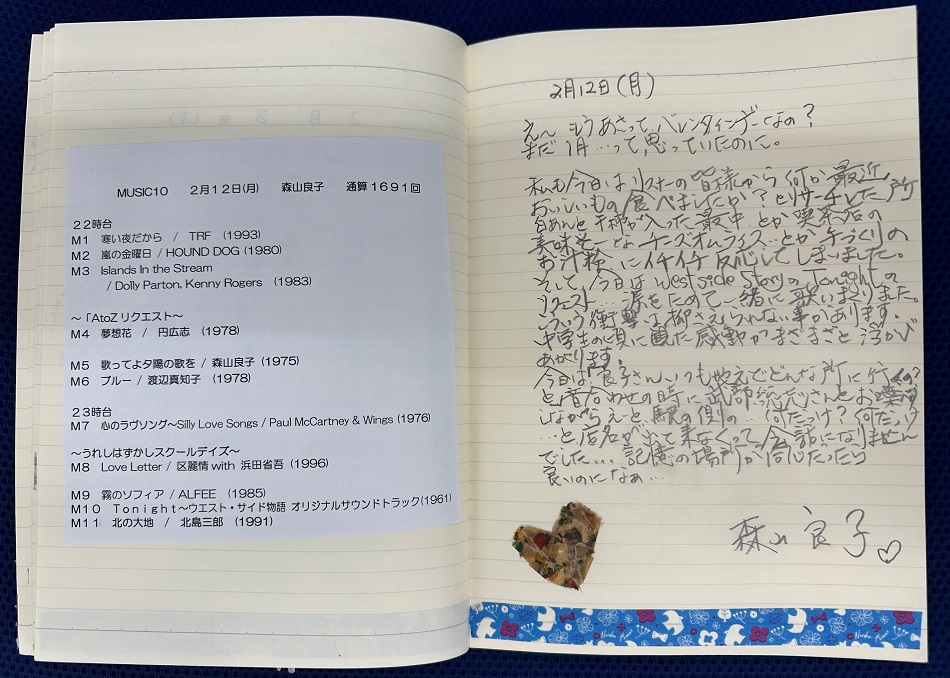 MUSIC10 2月12日(月) 森山良子 通算1691回
22時台
M1 寒い夜だから / TRF (1993)
M2 嵐の金曜日 / HOUND DOG (1980)
M3 Islands In the Stream
/ Dolly Parton, Kenny Rogers (1983)
～「AtoZ リクエスト～
M4 夢想花 / 円広志 (1978)
M5 歌ってよ夕陽の歌を / 森山良子 (1975)
M6 ブルー / 渡辺真知子 (1978)
23時台
M7 心のラヴソング～Silly Love Songs / Paul McCartney & Wings (1976)
～うれしはずかしスクールデイズ～
M8 Love Letter / 区麗情 with 浜田省吾 (1996)
M9 霧のソフィア / ALFEE (1985)
M10 Tonight～ウエスト・サイド物語 オリジナルサウンドトラック(1961)
M11 北の大地 / 北島三郎 (1991)
2月12日(月)
え～ もうあさって バレンタインデーなの?
まだ1月…って、思っていたのに。
私も今日はリスナーの皆様から何か最近
おいしいもの食べましたか?とリサーチした所
白あんと干柿が入った最中とか喫茶店の
美味そーなチーズオムライス…とか手づくりの
お汁粉にイチイチ反応してしまいました。
そして今日はWest side StoryのTonightの
リクエスト…涙をためて一緒に歌いまくりました。
こういう衝撃は抑えられない事があります。
中学生の頃に観た感動がまざまざと浮かび
あがります。
今日は「良子さんいつも
と音合わせの時に
しながらえーと駅の側の…何だっけ?何だっけ
…と店名が出て来なくって会話になりません
でした…記憶の場所が
良いのになぁ…
森山良子♡